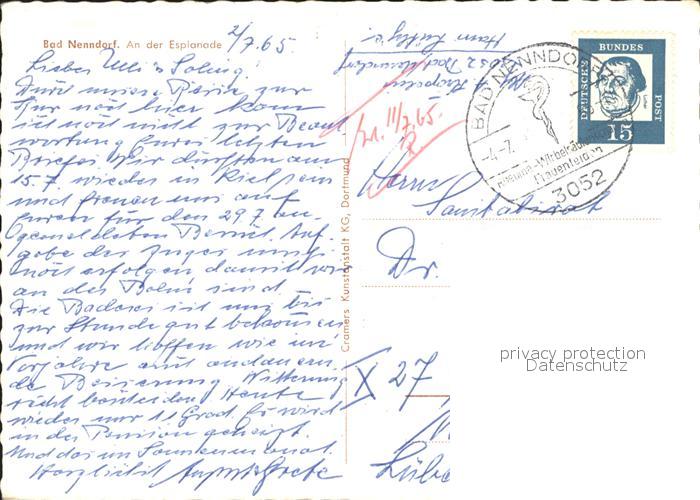 Bad Nenndorf. An der Esplanade
2/7.65
Lieber Ulli & Soling!
Durch unsere Reise zur
Kur nach hier kam
ich noch nicht zur Beant
wortung Eures letzten
Briefes. Wir dürften am
15.7. wieder in Kiel sein
und freuen uns auf
Euren für den 29.7 an-
gemeldeten Besuch. An-
gabe des Zuges muß
noch erfolgen damit wir
an der Bahn sind.
Die Baderei ist uns bis
zur Stunde gut bekommen
und wir hoffen wie im
Vorjahre auf andauern-
de Besserung. Witterung
nicht Heute
wieder nur 11 Grad. Es wird
in der Pension geheizt.
Und das im Sommermonat.
Herzlichst August & Grete
Cramers Kunstanstalt KG, Dortmund
3052 Bad Nenndorf
11/7.65.
BAD NENNDORF
-4.-7.
Rheuma-Wirbelsäule
Frauenleiden
3052
DEUTSCHE BUNDES POST
15
Herrn
Sanitätsrat
Dr.
X 27
Lübe
privacy protection
Datenschutz